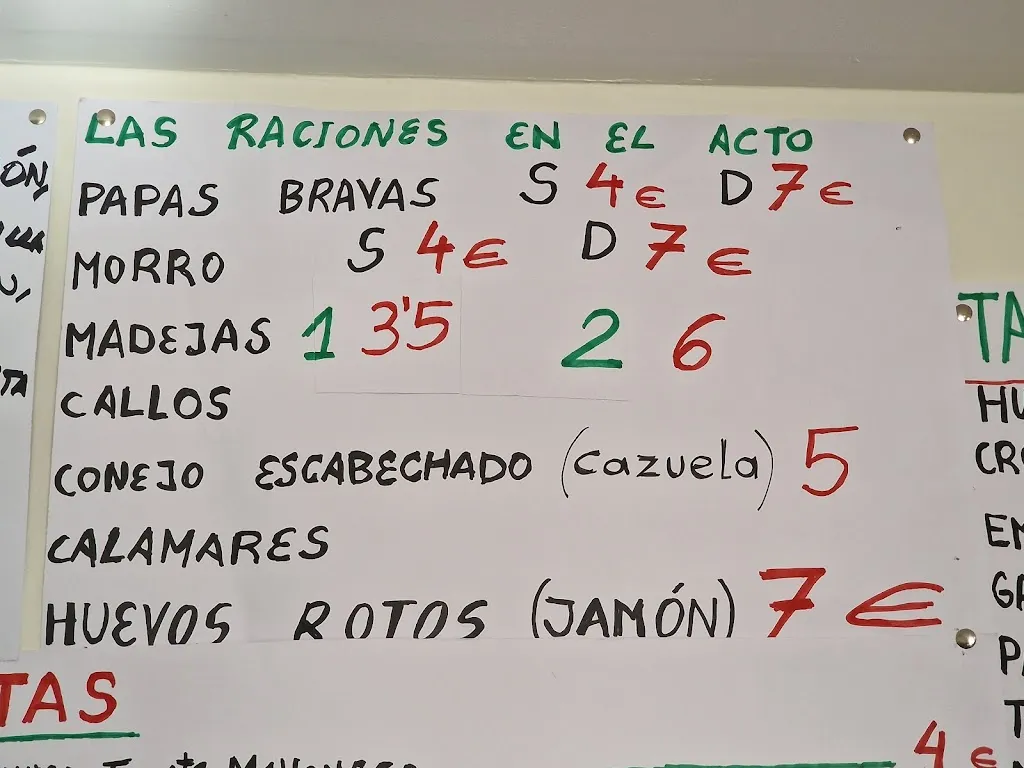 LAS RACIONES EN EL ACTO
PAPAS BRAVAS S 4€ D 7€
MORRO S 4€ D 7€
MADEJAS 1 3'5 2 6
CALLOS
CONEJO ESCABECHADO (cazuela) 5
CALAMARES
HUEVOS ROTOS (JAMÓN) 7€
TAS
4€
TA
HU
CR
EM
GA
PA
T
ÓN,
TA